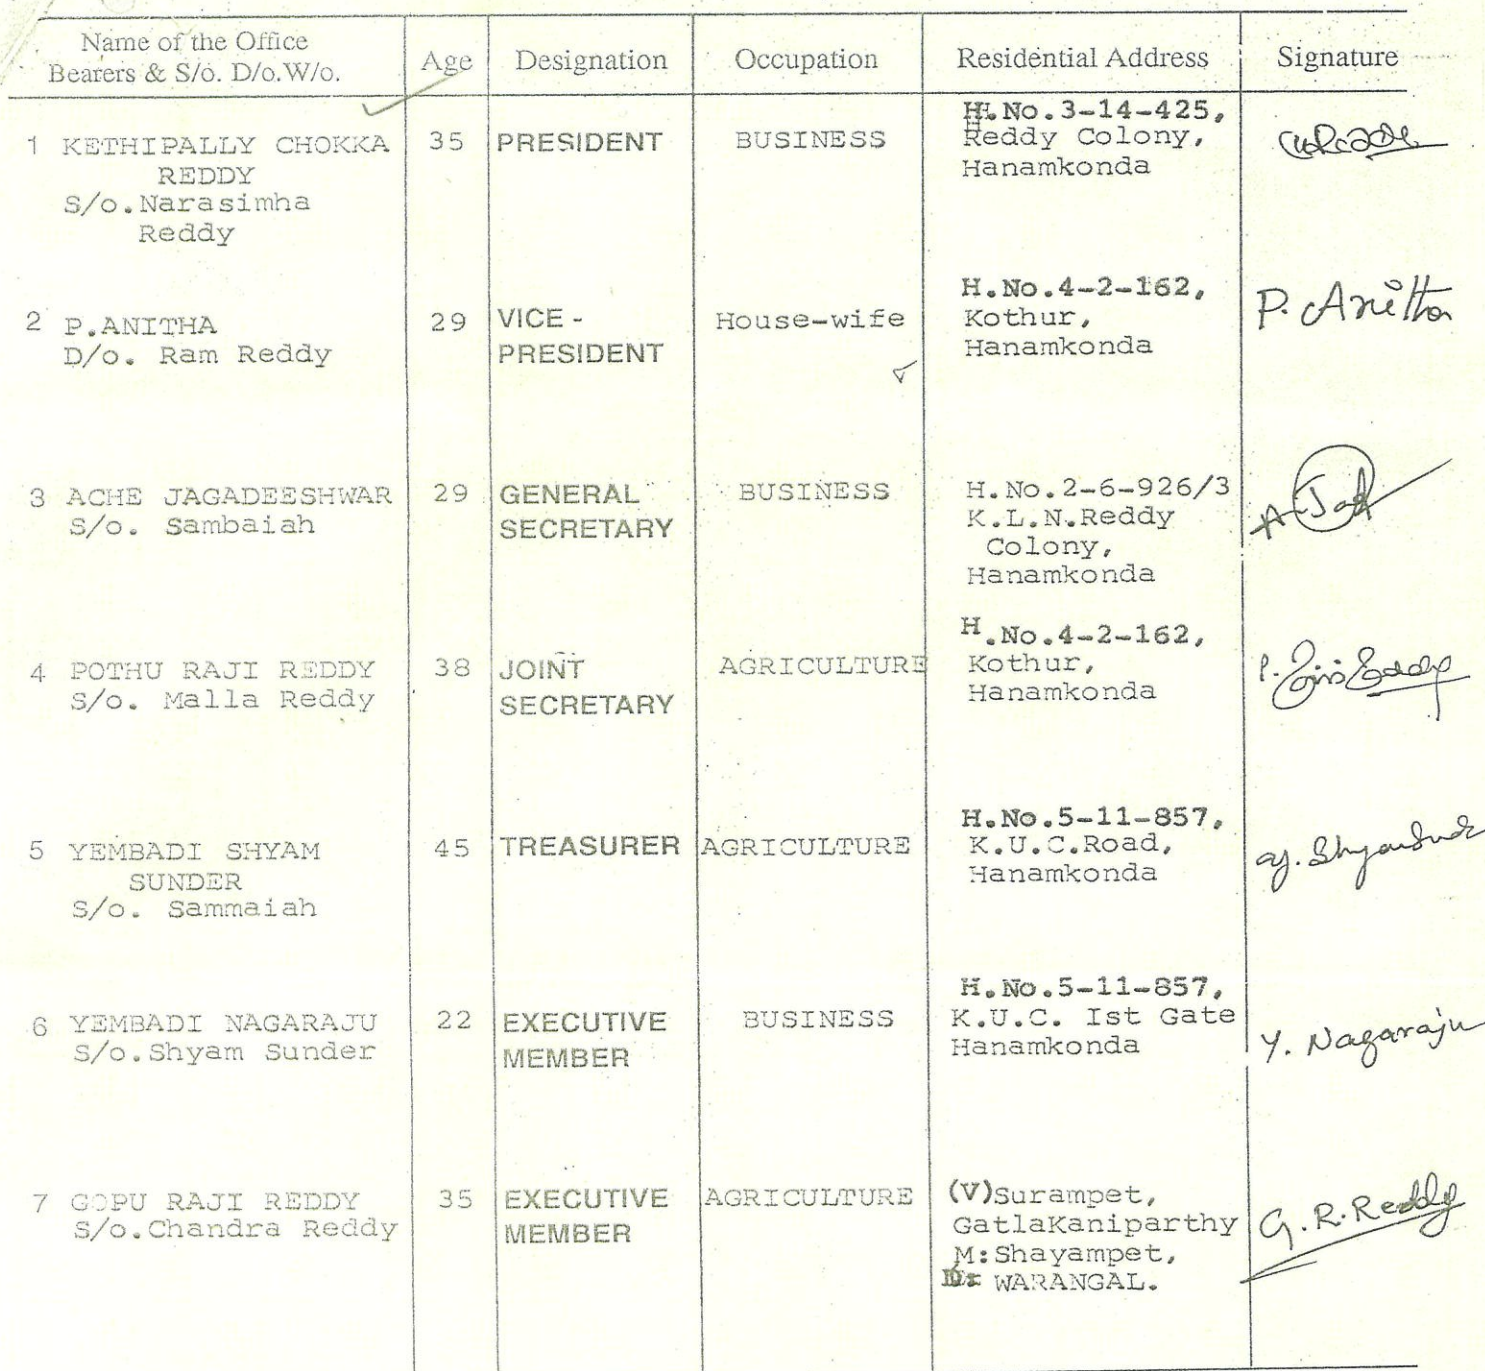 Name of the Office
Bearers & S/o. D/o.W/o.
Age
Designation
Occupation
Residential Address
Signature
1 KETHIPALLY CHOKKA
REDDY
S/o.Narasimha
Reddy
35
PRESIDENT
BUSINESS
H.No.3-14-425,
Reddy Colony,
Hanamkonda
2 P.ANITHA
D/o. Ram Reddy
29
VICE -
PRESIDENT
House-wife
H.No.4-2-162,
Kothur,
Hanamkonda
P. Anitha
3 ACHE JAGADEESHWAR
S/o. Sambaiah
29
GENERAL
SECRETARY
BUSINESS
H.No.2-6-926/3
K.L.N.Reddy
Colony,
Hanamkonda
A Jag
4 POTHU RAJI REDDY
S/o. Malla Reddy
38
JOINT
SECRETARY
AGRICULTURE
H.No.4-2-162,
Kothur,
Hanamkonda
5 YEMBADI SHYAM
SUNDER
S/o. Sammaiah
45
TREASURER
AGRICULTURE
H.No.5-11-857,
K.U.C.Road,
Hanamkonda
6 YEMBADI NAGARAJU
S/o.Shyam Sunder
22
EXECUTIVE
MEMBER
BUSINESS
H.No.5-11-857,
K.U.C. Ist Gate
Hanamkonda
Y. Nagaraju
7 GOPU RAJI REDDY
S/o.Chandra Reddy
35
EXECUTIVE
MEMBER
AGRICULTURE
(V)Surampet,
GatlaKaniparthy
M:Shayampet,
D: WARANGAL.
G.R.Reddy